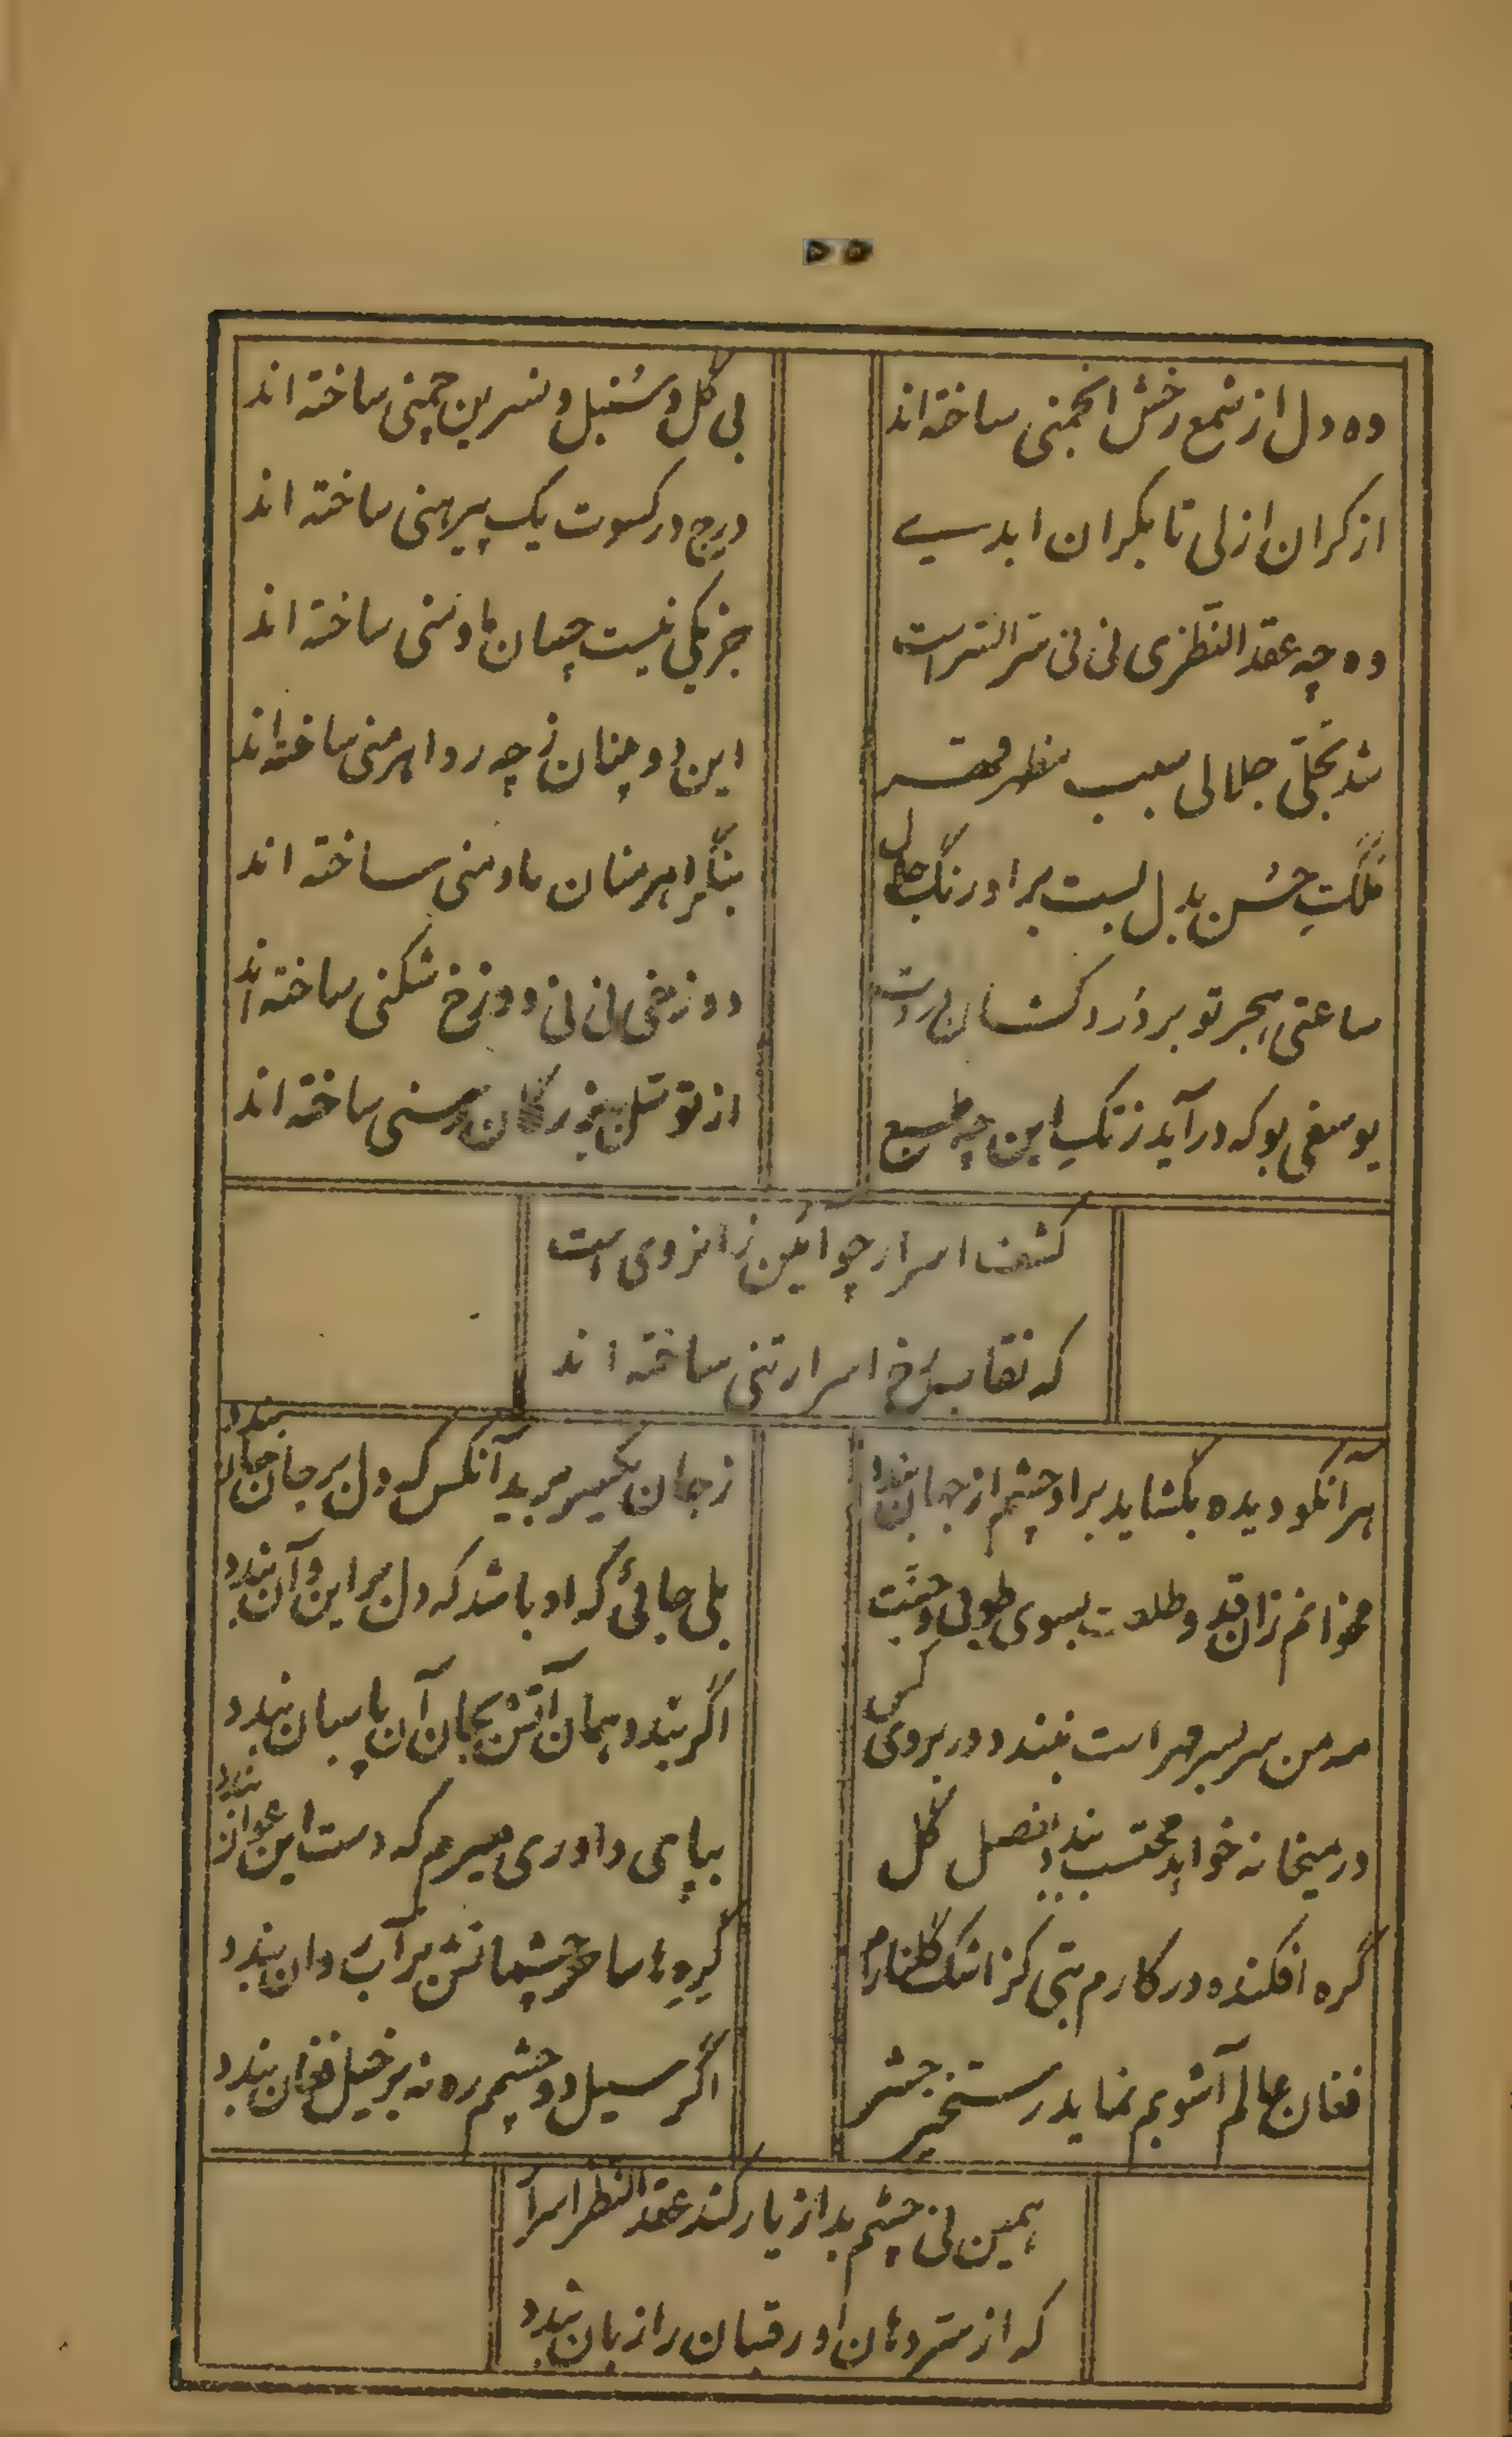 وه دل از شمع رخش انجمنی ساخته‌اند
بی گل و سُنبل و نسرین چمنی ساخته اند
از کران ازلی تا بکران ابدسیے
درج در کسوت یک پیرهنی ساخته اند
وه چه عقد النظری نی نی سّر السّر است
جز یکی نیست چسان ما و منی ساخته اند
شد تجلّی جلالی سبب مظهر قهر
این دو چنان ز چه رو اهرمنی ساخته‌اند
ملکتِ حسُن بدل بست بر اورنگ جلال
بنگر اهرمنان ما و منی ساخته اند
ساعتی هجر تو بر دُرد کشان
دوزخی نی نی دوزخ شکنی ساخته اند
یوسفی بو که درآید ز تکِ این چه طبیع
از توسّل رسنی ساخته اند
کشف اسرار چو آئین ز انروی است
که نقاب رخ اسرار تنی ساخته اند
هر آنکو دیده بگشاید بر او چشم از جهان بندد
ز جان یکسر برید آنکس که دل بر جان جانان بندد
مخوانم زان قد و طلعت بسوی طوبی و جنّت
بلی جائی که او باشد که دل بر این و آن بندد
مه من سر بسر مهر است نبندد در بروی کس
اگر بندد همان آتش بجان آن پاسبان بندد
در میخانه خواهد محتسب بندد بفصل گل
بپای داوری میرم که دست این عوانان بندد
گره افکنده در کارم بتی کز اشک گلنارم
گره‌ها ساحر چشمانش بر آب روان بندد
فغان عالم آشوبم نماید رستخیر حشر
اگر سیل دو چشم ره نه بر خیل فغان بندد
همین نی چشم بد از یار کند عقد النظر اسرار
که از سّر دهان او رقیبان را زبان بندد